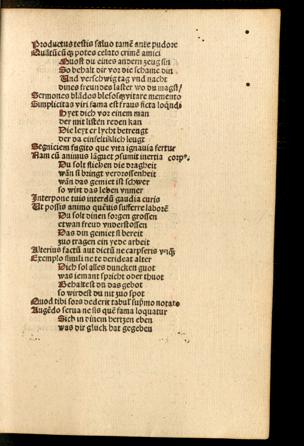 Productus testis saluo tamē ante pudore
Quātūcūq̄ potes celato crimē amici
Muost du eines andern zeug sin
So behalt dir vor die schame din
Und verschwig tag vnd nacht
dines freundes laster wo du magst/
Sermones blādos blesosq̄ vitare memento
Simplicitas viri fama est fraus ficta loquēdi
Hyet dich vor einem man
der mit listen reden kan
Die leyt er lycht betrengt
der da einfeltiklich leugt
Segniciem fugito que vita ignauia fertur
Nam cū animus lāguet psumit inertia corpꝰ.
Du solt fliehen die dragheit
wān si bringt verorossenheit
wān das gemiet ist schwer
so wirt das leben vnmer
Interpone tuis interdū gaudia curis
Ut possis animo quēuis sufferre laborē
Du solt dinen sorgen grossen
etwan freud vnderstossen
Das din gemiet si bereit
zuo tragen ein yede arbeit
Alterius factū aut dictū ne carpseris vnq̄
Exemplo simili ne te derideat alter
Dich sol alles duncken guot
was iemant spricht oder thuot
Behaltest du das gebot
so wirdest du nit zuo spot
Quod tibi sors dederit tabul' supmo notato
Augēdo serua ne sis quē fama loquatur
Sich in dinem hertzen eben
was dir gluck hat gegeben